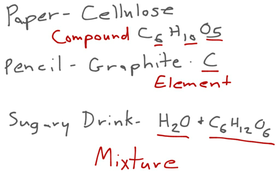 Paper - Cellulose
Compound C6 H10 O5
Pencil - Graphite. C
Element
Sugary Drink - H2O + C6H12O6
Mixture